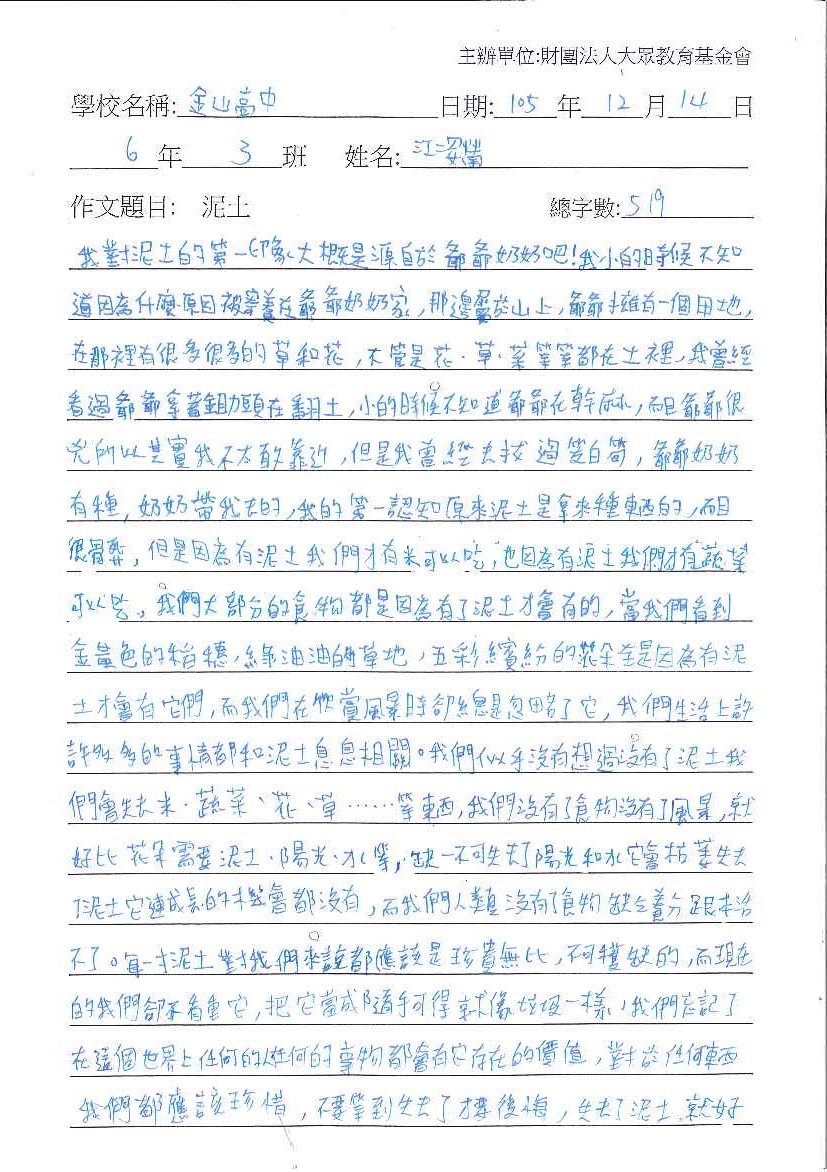 主辦單位:財團法人大眾教育基金會
學校名稱: 金山高中 日期: 105 年 12 月 14 日
6 年 3 班 姓名: 江
作文題目: 泥土 總字數: 519
我對泥土的第一印象大概是源自於爺爺奶奶吧!我小的時候不知
道因為什麼原因被寄養在爺爺奶奶家,那邊屬於山上,爺爺擁有一個田地,
在那裡有很多很多的草和花,不管是花、草、菜等等都在土裡,我曾經
看過爺爺拿著鋤頭在翻土,小的時候不知道爺爺在幹麻,而且爺爺很
兇所以其實我不太敢靠近,但是我曾經去拔過筊白筍,爺爺奶奶
有種,奶奶帶我去的,我的第一認知原來泥土是拿來種東西的,而且
很骨髒,但是因為有泥土我們才有米可以吃,也因為有泥土我們才有蔬菜
可以吃,我們大部分的食物都是因為有了泥土才會有的,當我們看到
金黃色的稻穗,綠油油的草地,五彩繽紛的花朵全是因為有泥
土才會有它們,而我們在欣賞風景時卻總是忽略了它,我們生活上許
許多多的事情都和泥土息息相關。我們似乎沒有想過沒有了泥土我
們會失去米、蔬菜、花、草……等東西,我們沒有了食物沒有了風景,就
好比花朵需要泥土、陽光、水等,缺一不可失去了陽光和水它會枯萎失去
了泥土它連成長的機會都沒有,而我們人類沒有了食物缺乏養分跟本活
不了。每一寸泥土對我們來說都應該是珍貴無比,不可獲缺的,而現在
的我們卻不看重它,把它當成隨手可得就像垃圾一樣,我們忘記了
在這個世界上任何的人任何的事物都會有它存在的價值,對於任何東西
我們都應該珍惜,不要等到失去了才要後悔,失去了泥土就好